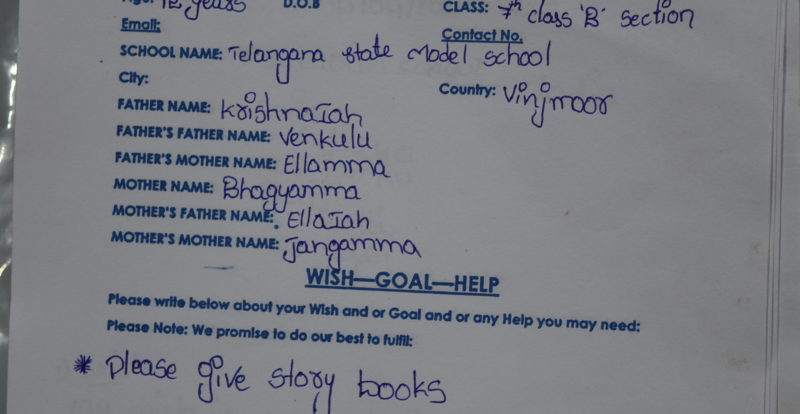 Age: 12 years D.O.B CLASS: 7th class 'B' section
Email: Contact No.
SCHOOL NAME: Telangana state model school
City: Country: Vinjmoor
FATHER NAME: KrishnaIah
FATHER'S FATHER NAME: Venkulu
FATHER'S MOTHER NAME: Ellamma
MOTHER NAME: Bhagyamma
MOTHER'S FATHER NAME: EllaIah
MOTHER'S MOTHER NAME: Jangamma
WISH—GOAL—HELP
Please write below about your Wish and or Goal and or any Help you may need:
Please Note: We promise to do our best to fulfil:
* please give story books